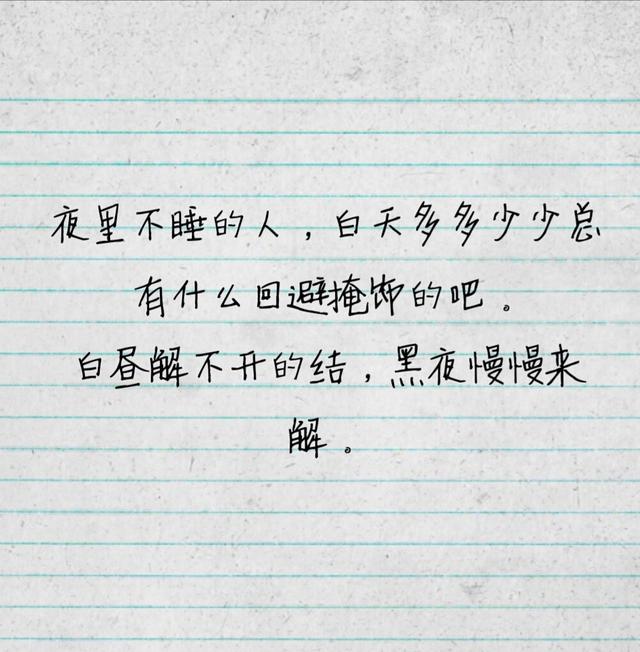 夜里不睡的人，白天多多少少总
有什么回避掩饰的吧。
白昼解不开的结，黑夜慢慢来
解。